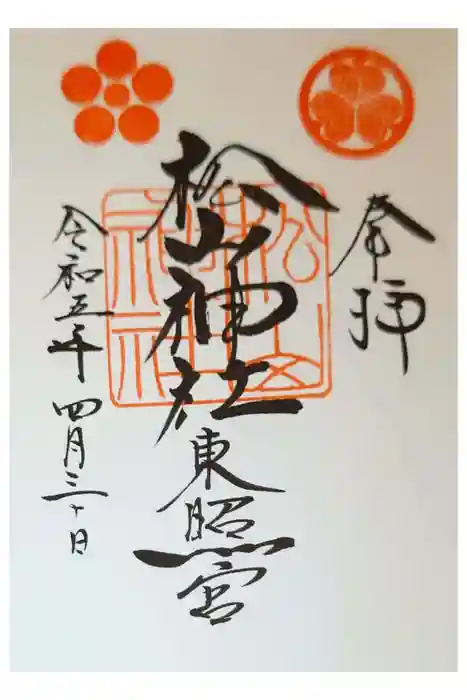 奉拝
松山神社
東照宮
令和五年四月三十日
松山神社